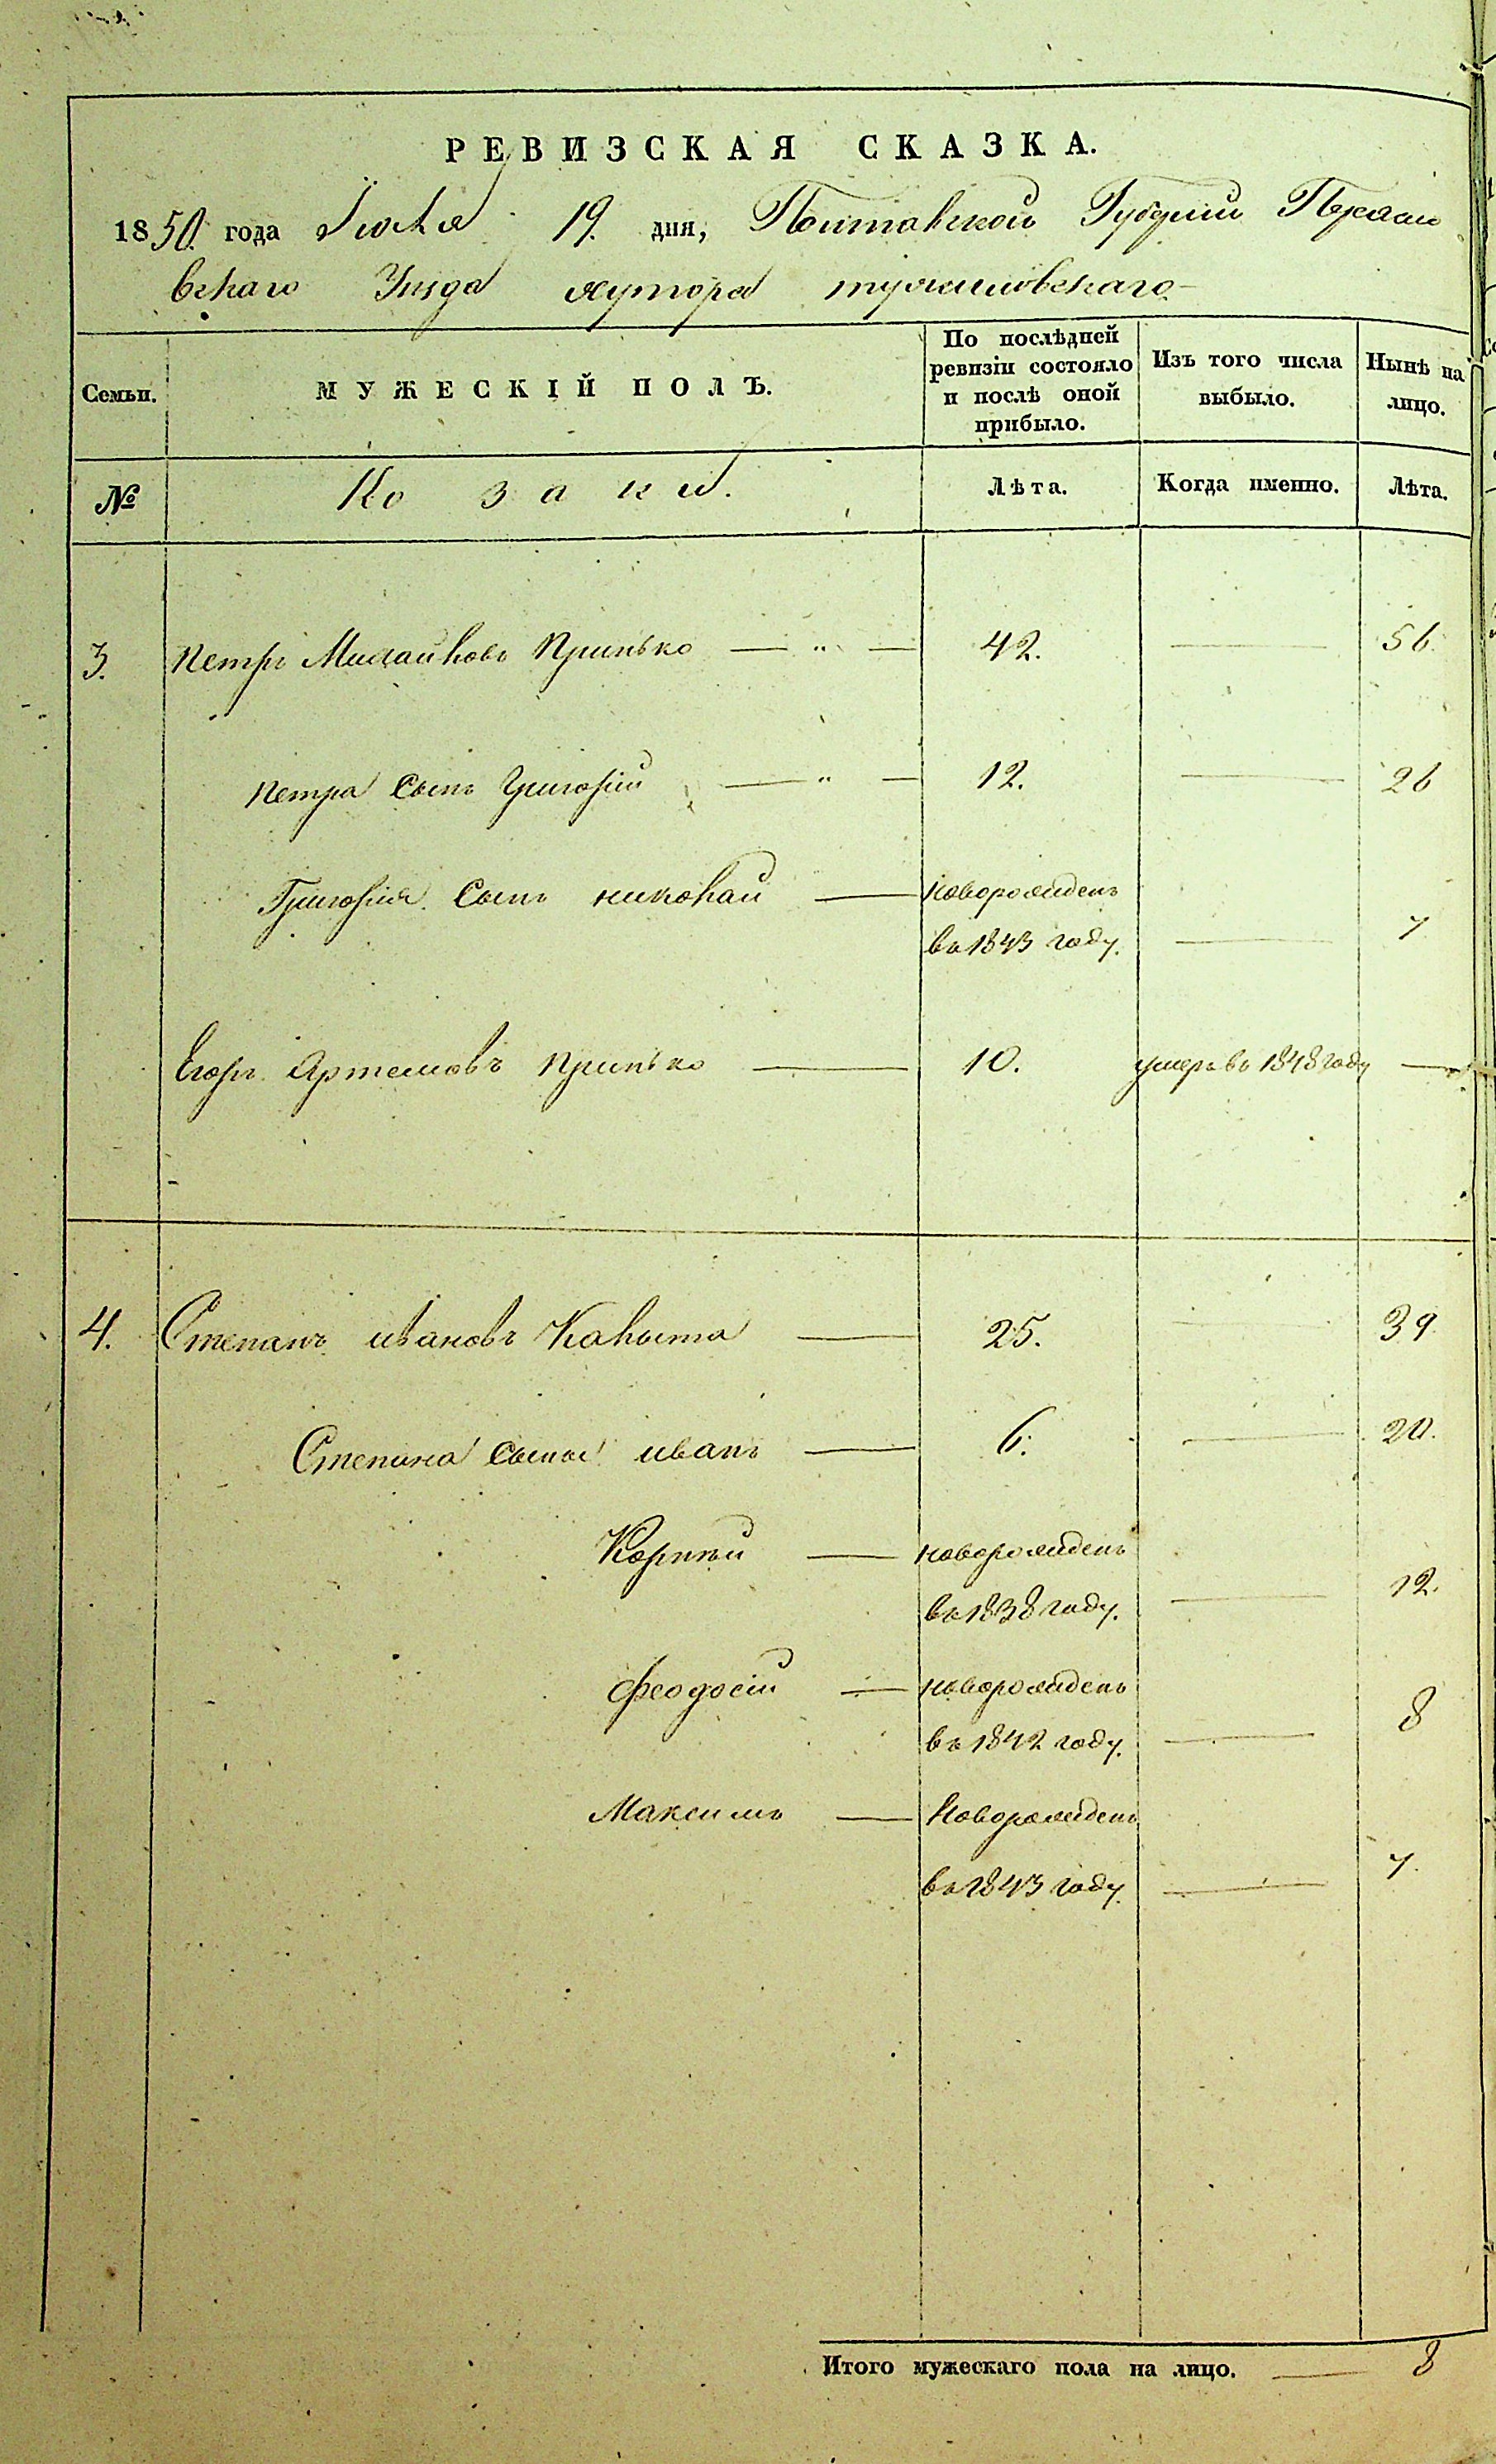 РЕВИЗСКАЯ СКАЗКА.
1850. года Іюля 19. дня, Полтавской Губерніи
вскаго Уѣзда хутора
Семьи. МУЖЕСКІЙ ПОЛЪ. По послѣдней ревизіи состояло и послѣ оной прибыло. Изъ того числа выбыло. Нынѣ на лицо.
№ Козаки. Лѣта. Когда именно. Лѣта.
3. Петръ Михайловъ Припько — " — 42. — 56.
Петра сынъ Григорій — " — 12. — 26
Григорія сынъ николай — новорожденъ
въ 1843 году. — 7
Егоръ Артемовъ Припько — 10. умеръ въ 1848 году —
4. Степанъ ивановъ Калыта — 25. — 39.
Степана сыны иванъ — 6. — 20.
Корнѣй — новорожденъ
въ 1838 году. — 12.
Феодосій — новорожденъ
въ 1842 году. — 8
Максимъ — Новорожденъ
въ 1843 году. — 7.
Итого мужескаго пола на лицо. — 8